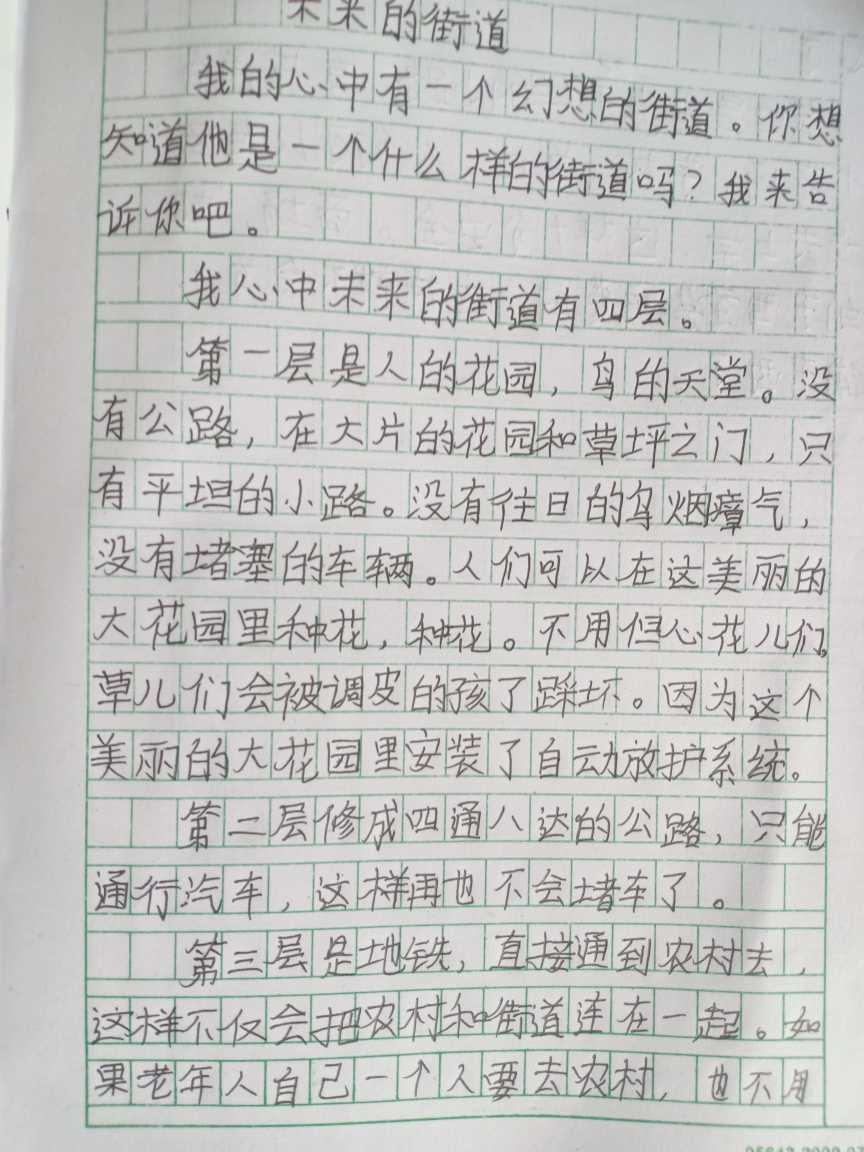 未来的街道
我的心中有一个幻想的街道。你想
知道他是一个什么样的街道吗？我来告
诉你吧。
我心中未来的街道有四层。
第一层是人的花园，鸟的天堂。没
有公路，在大片的花园和草坪之门，只
有平坦的小路。没有往日的乌烟瘴气，
没有堵塞的车辆。人们可以在这美丽的
大花园里种花，种花。不用但心花儿们，
草儿们会被调皮的孩了踩坏。因为这个
美丽的大花园里安装了自动放护系统。
第二层修成四通八达的公路，只能
通行汽车，这样再也不会堵车了。
第三层是地铁，直接通到农村去，
这样不仅会把农村和街道连在一起。如
果老年人自己一个人要去农村，也不用